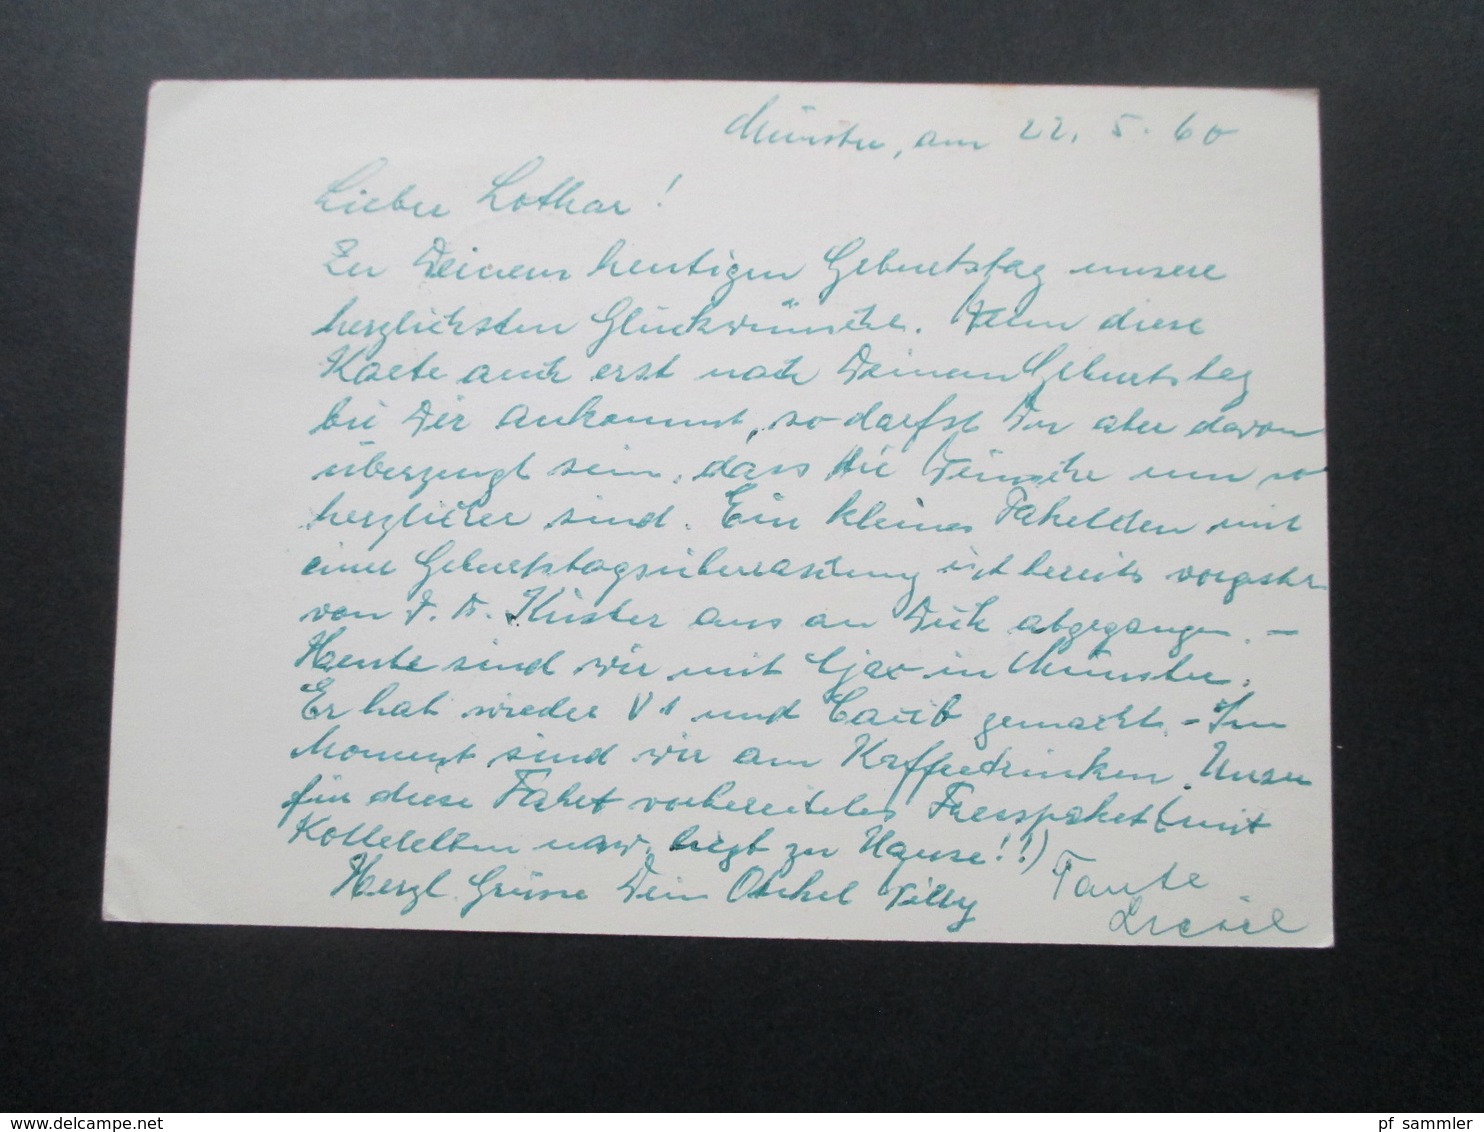 Münster, am 22. 5. 60
Lieber Lothar!
Zu Deinem heutigen Geburtstag unsere
herzlichsten Glückwünsche. Wenn diese
Karte auch erst nach Deinem Geburtstag
bei Dir ankommt, so darfst Du aber davon
überzeugt sein, dass die Wünsche um so
herzlicher sind. Ein kleines Päckchen mit
einer Geburtstagsüberraschung ist bereits vorgestern
von Küster aus an Dich abgegangen. –
Heute sind wir mit Ajax in Münster.
Er hat wieder V 1 und gemacht. – Im
Moment sind wir am Kaffeetrinken. Unser
für diese Fahrt vorbereitetes Fresspaket (mit
Koteletten usw. liegt zu Hause!!)
Herzl. Grüsse Dein Onkel Willy Tante
Liesel
www.delcampe.net
pf_sammler